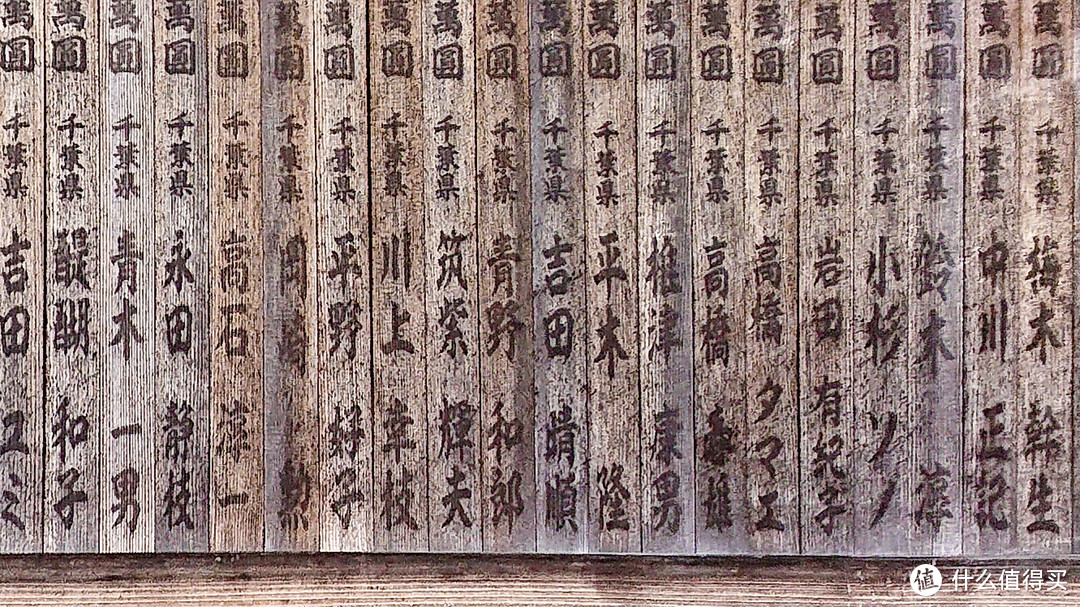 萬圓 千葉県 梅木 幹生
萬圓 千葉県 中川 正記
萬圓 千葉県 鈴木
萬圓 千葉県 小杉 ソノ
萬圓 千葉県 岩田 有紀子
萬圓 千葉県 高橋 タマエ
萬圓 千葉県 高橋
萬圓 千葉県 椎津 康男
萬圓 千葉県 平木 隆
萬圓 千葉県 吉田 晴順
萬圓 千葉県 青野 和郎
萬圓 千葉県 筑紫 輝夫
萬圓 千葉県 川上 幸枝
萬圓 千葉県 平野 好子
萬圓 千葉県 勲
萬圓 千葉県 高石 一
萬圓 千葉県 永田 静枝
萬圓 千葉県 青木 一男
萬圓 千葉県 醍醐 和子
萬圓 千葉県 吉田 エミ
值 什么值得买